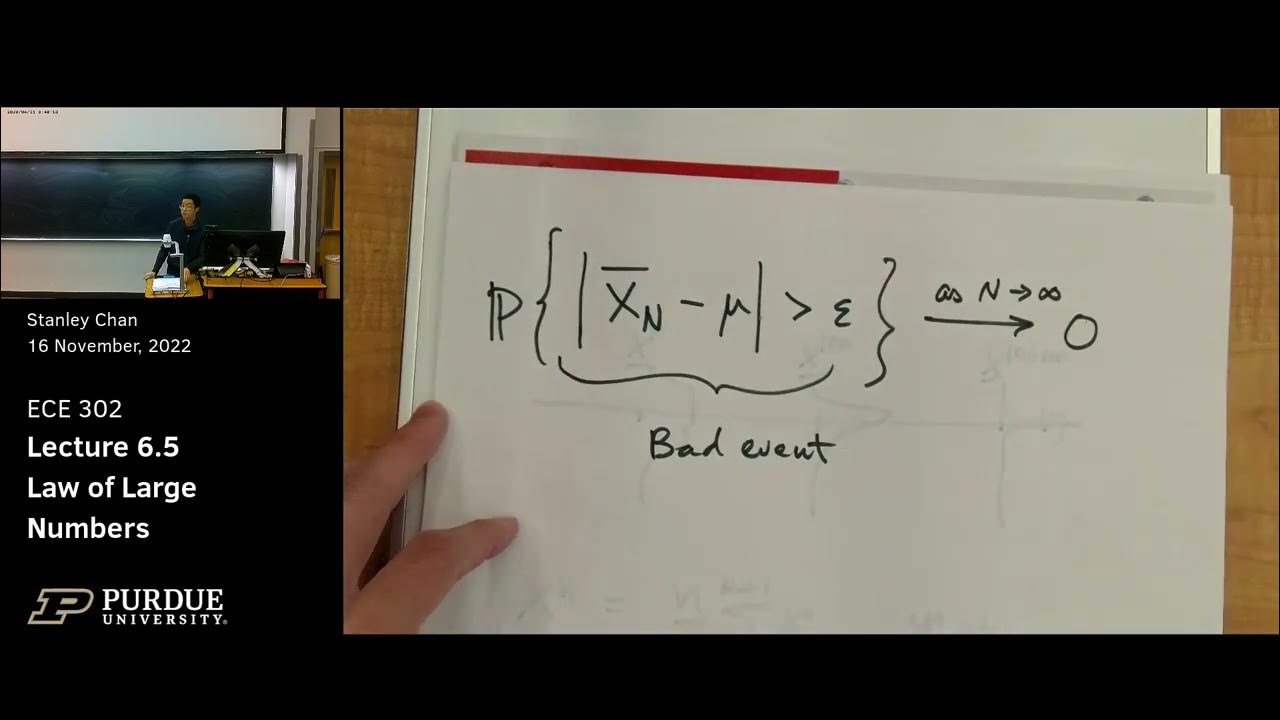 Stanley Chan
16 November, 2022
ECE 302
Lecture 6.5
Law of Large
Numbers
PURDUE
UNIVERSITY®
ℙ{ | X̄_N − μ | > ε } as N → ∞ ⟶ 0
Bad event